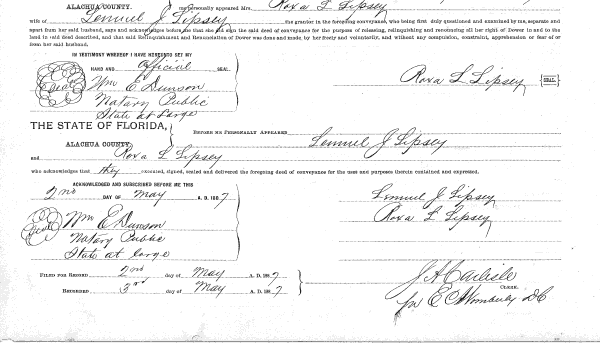 ALACHUA COUNTY. me personally appeared Mrs. Roxa L. Lipsey
wife of Lemuel J Lipsey the grantor in the foregoing conveyance, who being first duly questioned and examined by me, separate and
apart from her said husband, says and acknowledges before me that she did sign the said deed of conveyance for the purpose of releasing, relinquishing and renouncing all her right of Dower in and to the
land in said deed described, and that said Relinquishment and Renunciation of Dower was done and made, by her freely and voluntarily, and without any compulsion, constraint, apprehension or fear of or
from her said husband.
IN TESTIMONY WHEREOF I HAVE HEREUNTO SET MY
HAND AND Official SEAL.
Seal Wm E. Dunson Roxa L Lipsey SEAL.
Notary Public
State at Large
THE STATE OF FLORIDA,
ALACHUA COUNTY. BEFORE ME PERSONALLY APPEARED Lemuel J Lipsey
and Roxa L Lipsey
who acknowledges that they executed, signed, sealed and delivered the foregoing deed of conveyance for the uses and purposes therein contained and expressed.
ACKNOWLEDGED AND SUBSCRIBED BEFORE ME THIS
2nd DAY OF May A. D. 1887 Lemuel J Lipsey
Seal Wm E Dunson Roxa L Lipsey
Notary Public
State at Large
FILED FOR RECORD 2nd day of May A. D. 1887 J A Carlisle
RECORDED 3rd day of May A. D. 1887 CLERK.
per E C D C